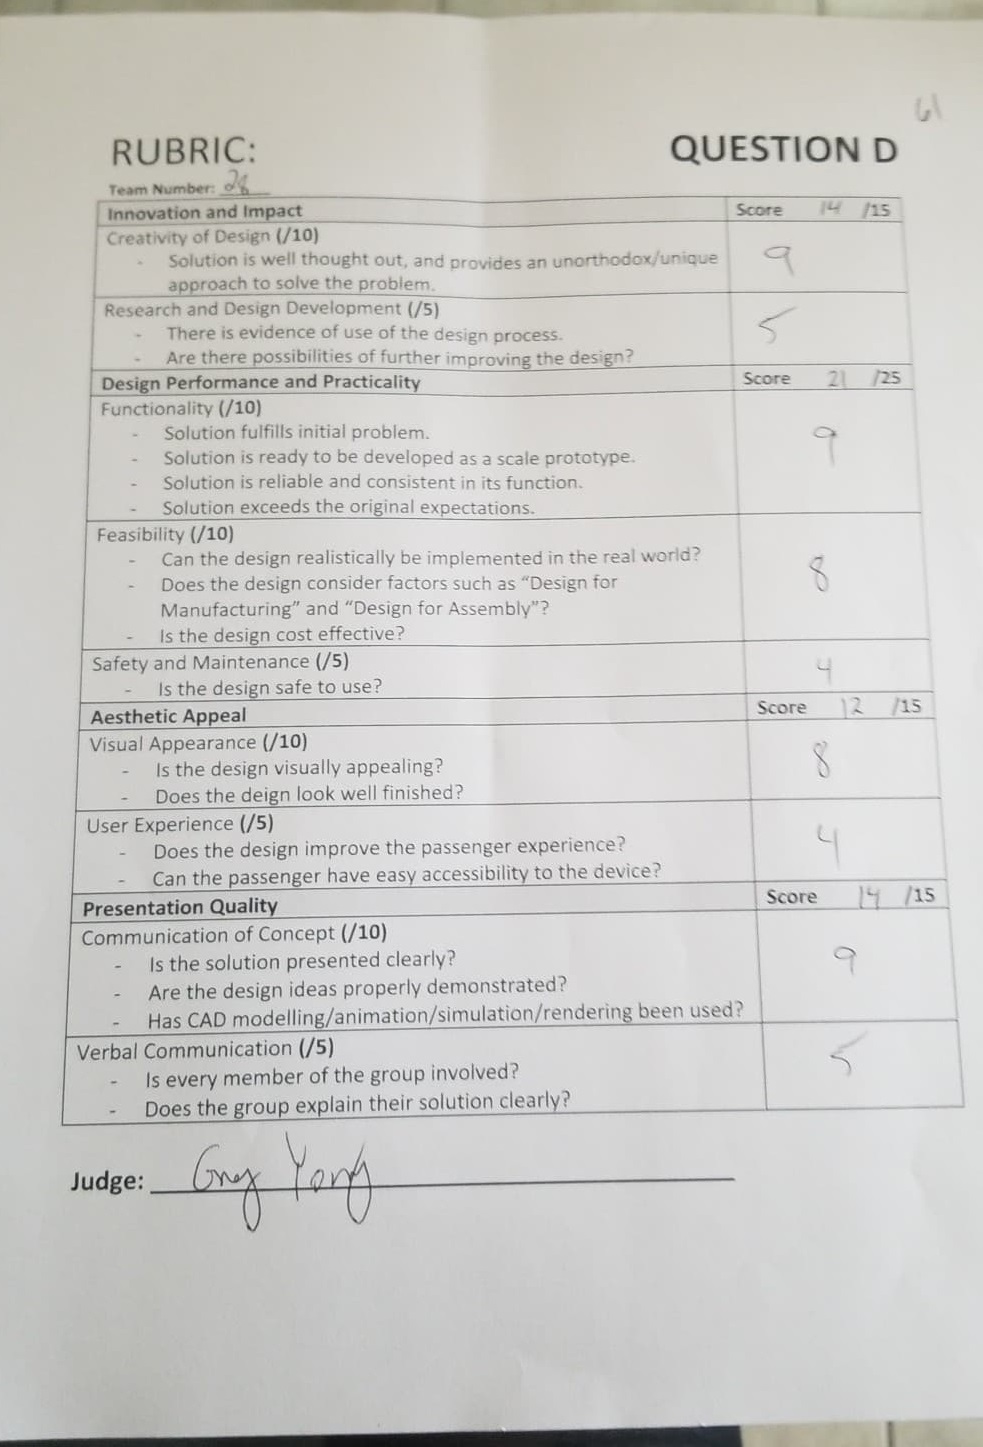 61
RUBRIC: QUESTION D
Team Number: 28
Innovation and Impact Score 14 /15
Creativity of Design (/10) 9
- Solution is well thought out, and provides an unorthodox/unique
approach to solve the problem.
Research and Design Development (/5) 5
- There is evidence of use of the design process.
- Are there possibilities of further improving the design?
Design Performance and Practicality Score 21 /25
Functionality (/10) 9
- Solution fulfills initial problem.
- Solution is ready to be developed as a scale prototype.
- Solution is reliable and consistent in its function.
- Solution exceeds the original expectations.
Feasibility (/10) 8
- Can the design realistically be implemented in the real world?
- Does the design consider factors such as “Design for
Manufacturing” and “Design for Assembly”?
- Is the design cost effective?
Safety and Maintenance (/5) 4
- Is the design safe to use?
Aesthetic Appeal Score 12 /15
Visual Appearance (/10) 8
- Is the design visually appealing?
- Does the deign look well finished?
User Experience (/5) 4
- Does the design improve the passenger experience?
- Can the passenger have easy accessibility to the device?
Presentation Quality Score 14 /15
Communication of Concept (/10) 9
- Is the solution presented clearly?
- Are the design ideas properly demonstrated?
- Has CAD modelling/animation/simulation/rendering been used?
Verbal Communication (/5) 5
- Is every member of the group involved?
- Does the group explain their solution clearly?
Judge: